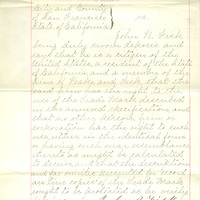 City and County
of San Francisco } ss.
State of California
John R. 
being duly sworn deposes and
says that he is a citizen of the
United States, a resident of the State
of California, and a member of the
firm of and that the
said firm has the right to the
use of the Trade Mark described
in the annexed specification, and
that no other person firm or
corporation has the right to such
use, either in the identical form
or having such near resemblance
thereto as might be calculated
to deceive; and that the description
and facsimiles presented for record
are true copies of the Trade Mark
sought to be protected